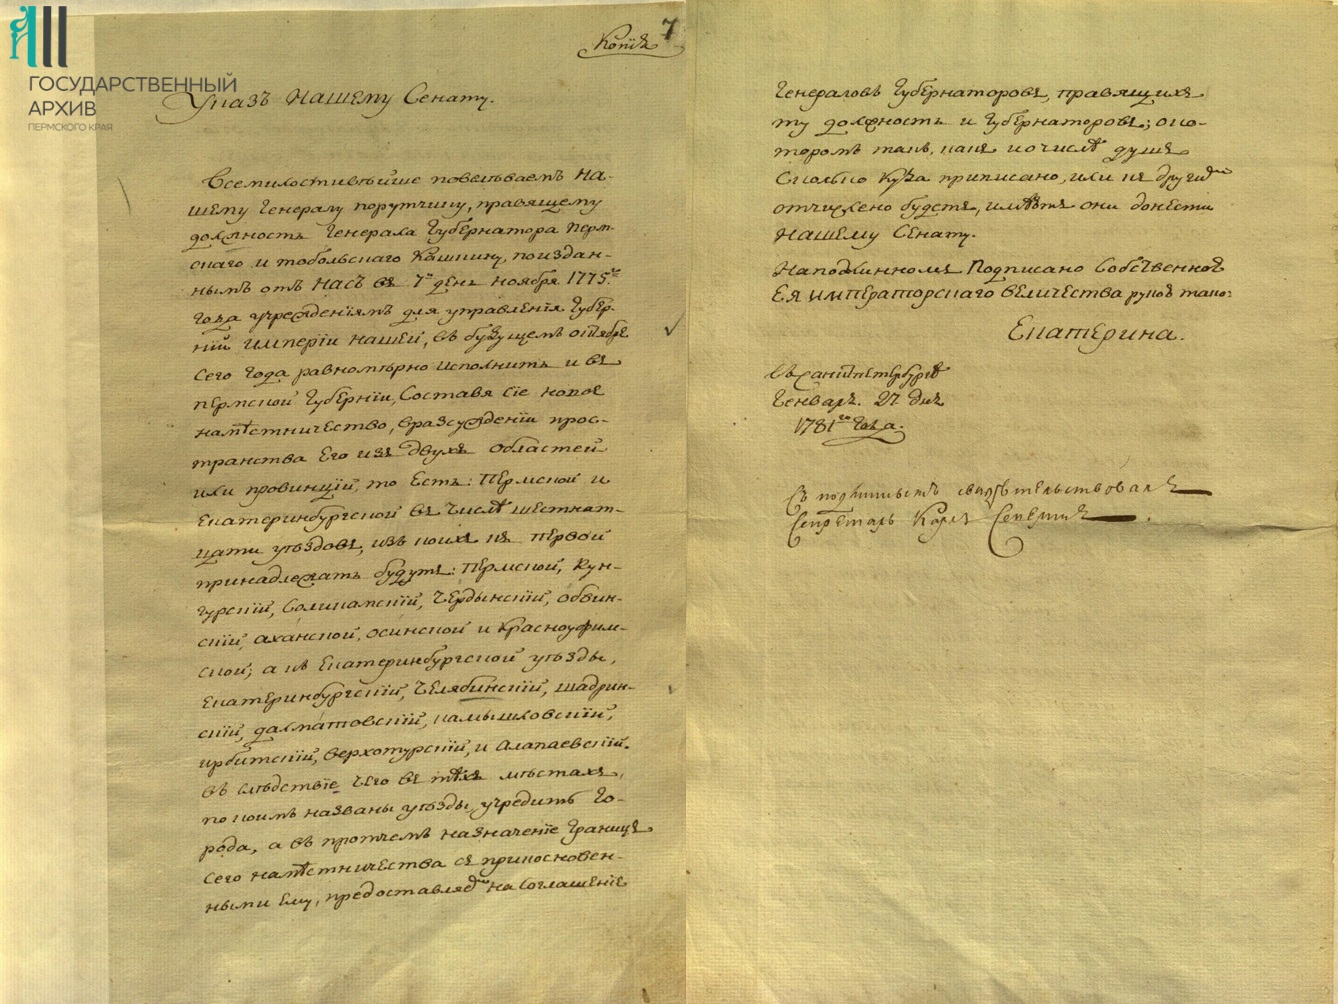 ГОСУДАРСТВЕННЫЙ
АРХИВ
ПЕРМСКОГО КРАЯ
7
Копія
Указъ НАШЕМУ Сенату.
Всемилостивѣйше повелѣваемъ НА-
шему Генералу порутчику, правящему
должность Генерала Губернатора Перм-
скаго и тобольскаго Кашкину, по издан-
нымъ отъ НАСЪ въ 7й день ноября 1775го
года учрежденіямъ для управленія Губер-
ній Имперіи НАШЕЙ, въ будущемъ октябре
сего года равномѣрно исполнить и въ
пермской Губерніи, Составя сіе новое
намѣстничество, вразсужденіи прос-
транства Его изъ двухъ областей
или провинцій, то Есть: Пермской и
Екатеринбургской въ числѣ шестнат-
цати уѣздовъ, изъ коихъ къ первой
принадлежать будутъ: Пермской, Кун-
гурскій, Соликамскій, Чердынскій, обвин-
скій, аханской, осинской и Красноуфим-
ской; а къ Екатеринбургской уѣзды,
Екатеринбургскій, Челябинскій, шадрин-
скій, далматовскій, камышловскій,
ирбитскій, верхотурскій, и Алапаевскій.
въ слѣдствіе чего въ тѣхъ мѣстахъ,
по коимъ названы уѣзды, учредить Го-
рода, а въ протчемъ назначеніе границъ
сего намѣстничества съ прикосновен-
ными ему, предоставляемъ на соглашеніе
Генераловъ Губернаторовъ, правящихъ
ту должность и Губернаторовъ; о ко-
торомъ такъ, какъ и о числѣ душъ
сколько куда приписано, или къ другимъ
отчислено будетъ, имѣютъ они донести
НАШЕМУ СЕНАТУ.
На подлинномъ Подписано Собственной
ЕЯ ИМПЕРАТОРСКАГО ВЕЛИЧЕСТВА рукой тако:
ЕКАТЕРИНА.
Въ Санктпетербургѣ
Генваря 27 дня
1781го Года.
Съ подлиннымъ свидѣтельствовалъ
Секретарь Карлъ